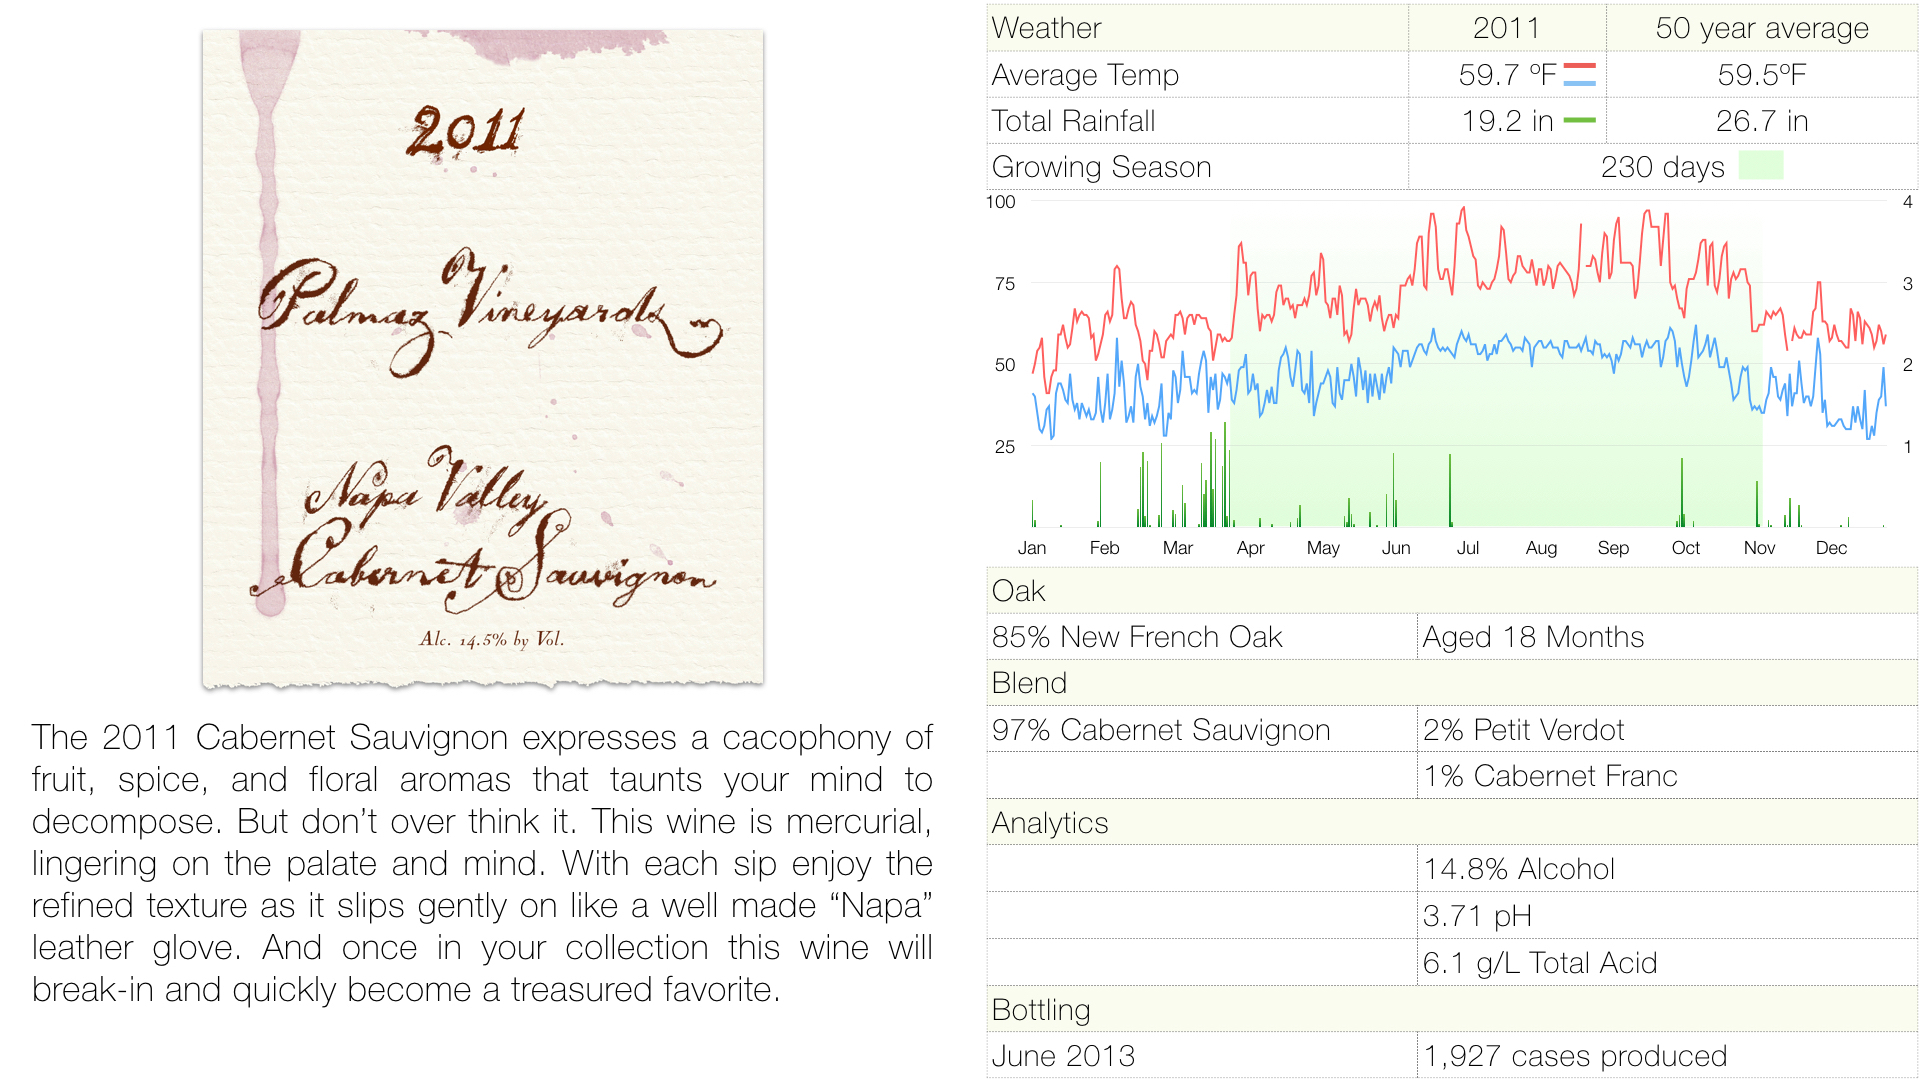 2011
Palmaz Vineyards
Napa Valley
Cabernet Sauvignon
Alc. 14.5% by Vol.
The 2011 Cabernet Sauvignon expresses a cacophony of
fruit, spice, and floral aromas that taunts your mind to
decompose. But don’t over think it. This wine is mercurial,
lingering on the palate and mind. With each sip enjoy the
refined texture as it slips gently on like a well made “Napa”
leather glove. And once in your collection this wine will
break-in and quickly become a treasured favorite.
Weather 2011 50 year average
Average Temp 59.7 ºF 59.5ºF
Total Rainfall 19.2 in 26.7 in
Growing Season 230 days
100 4
75 3
50 2
25 1
Jan Feb Mar Apr May Jun Jul Aug Sep Oct Nov Dec
Oak
85% New French Oak Aged 18 Months
Blend
97% Cabernet Sauvignon 2% Petit Verdot
1% Cabernet Franc
Analytics
14.8% Alcohol
3.71 pH
6.1 g/L Total Acid
Bottling
June 2013 1,927 cases produced